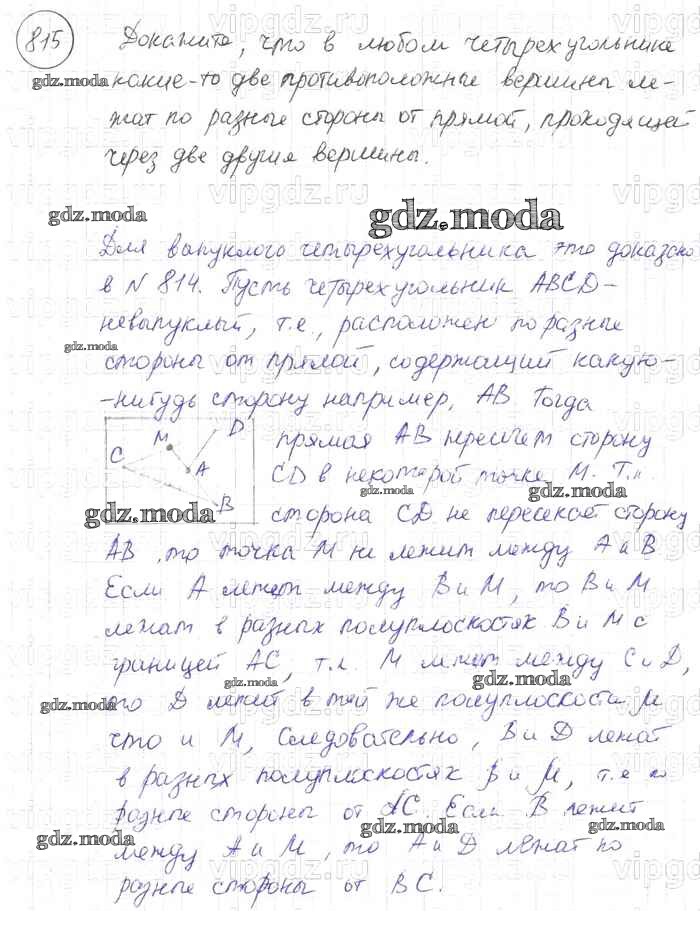 815 Докажите, что в любом четырехугольнике
какие-то две противоположные вершины ле-
жат по разные стороны от прямой, проходящей
через две другие вершины.
gdz.moda
gdz.moda
gdz.moda
Для выпуклого четырехугольника это доказано
в №814. Пусть четырехугольник ABCD-
невыпуклый, т.е., расположен по разные
gdz.moda
стороны от прямой, содержащий какую-
-нибудь сторону например, AB. Тогда
M D C A B
прямая AB пересечет сторону
CD в некоторой точке M. Т.к.
gdz.moda
gdz.moda
gdz.moda
сторона CD не пересекает сторону
AB, то точка M не лежит между A и B
Если A лежит между B и M, то B и M
лежат в разных полуплоскостях B и M с
границей AC, т.к. M лежит между C и D,
gdz.moda
gdz.moda
gdz.moda
то D лежит в той же полуплоскости M
что и M, следовательно, B и D лежат
в разных полуплоскостях B и M, т.е по
разные стороны от AC. Если B лежит
gdz.moda
gdz.moda
gdz.moda
между A и M, то A и D лежат по
разные стороны от BC.
vipgdz.ru